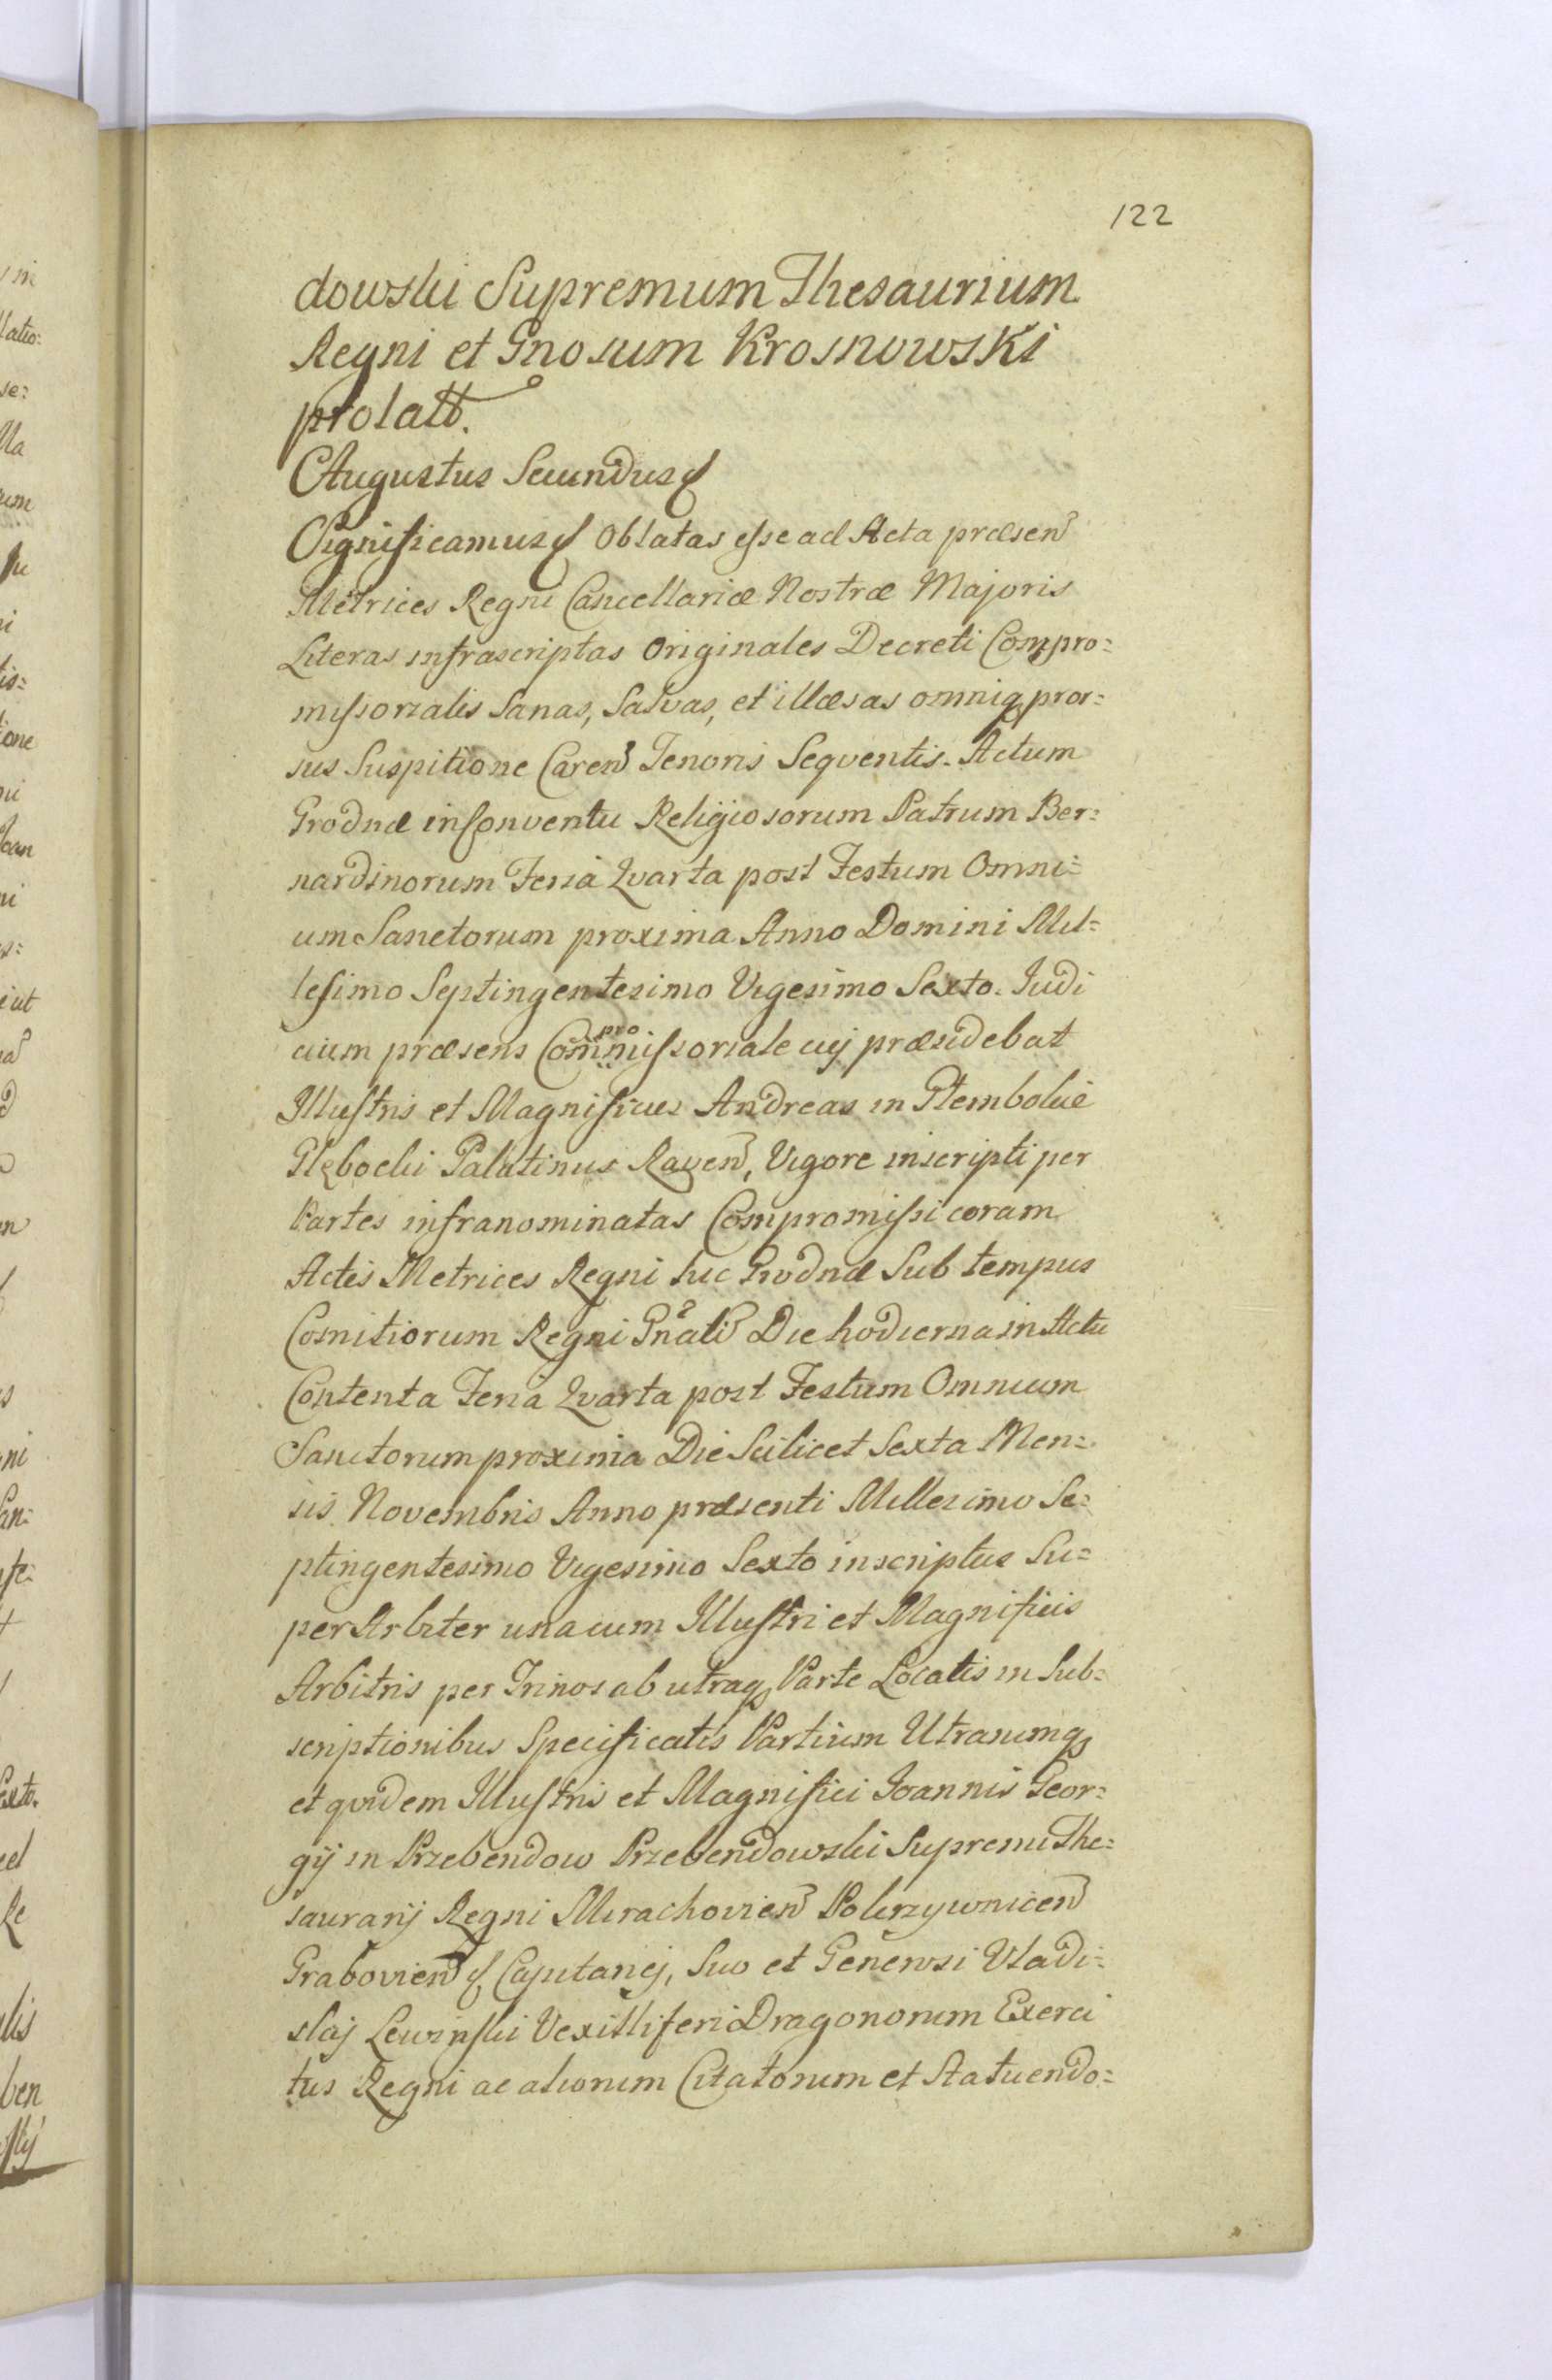 122
dowski Supremum Thesaurium
Regni et Gnosum Krosnowski
prolatt.
Augustus Secundus &
Significamus & Oblatas esse ad Acta præsen
Metrices Regni Cancellariæ Nostræ Majoris
Literas infrascriptas Originales Decreti Compro=
missorialis Sanas, Salvas, et illæsas omniq pror=
sus Suspitione Caren Tenoris Seqventis. Actum
Grodnæ in Conventu Religiosorum Patrum Ber=
nardinorum Feria Qvarta post Festum Omni=
um Sanctorum proxima Anno Domini Mil=
lesimo Septingentesimo Vigesimo Sexto. Judi
cium præsens Compromissoriale cuj præsidebat
Illustris et Magnificus Andreas in
Głębocki Palatinus Raven, Vigore inscripti per
Partes infranominatas Compromissi coram
Actis Metrices Regni huc Grodnæ Sub tempus
Comitiorum Regni Gnali Die hodierna in Actu
Contenta Feria Qvarta post Festum Omnium
Sanctorum proxima Die Scilicet Sexta Men=
sis Novembris Anno præsenti Millesimo Se=
ptingentesimo Vigesimo Sexto inscriptus Su=
per Arbiter una cum Illustri et Magnificis
Arbitris per Trinos ab utraq Parte Locatis in Sub=
scriptionibus Specificatis Partium Utrarumq
et qvidem Illustris et Magnifici Joannis Geor=
gij in Przebendow Przebendowski Supremi The=
saurarij Regni Mirachovien Pokrzywnicen
Grabovien & Capitanej, Suo et Generosi Vladi=
slaj Lewinski Vexilliferi Dragonorum Exerci
tus Regni ac aliorum Citatorum et Statuendo=